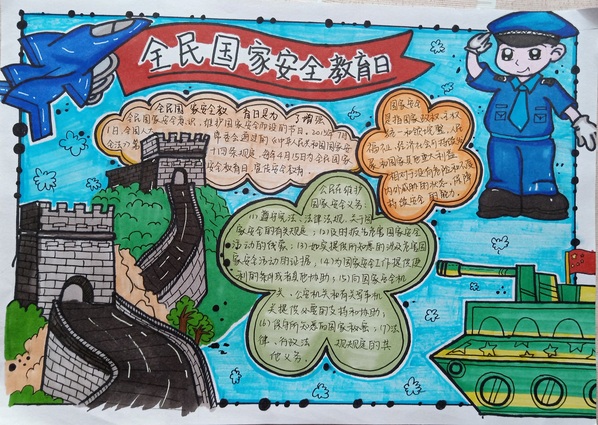 全民国家安全教育日
全民国家安全教育日是为了增强
全民国家安全意识，维护国家安全而设的节日。2015年7月
1日，全国人大
常委会通过的《中华人民共和国国家安
全法》第
十四条规定，每年4月15日为全民国家
安全教育日
国家安全
是指国家政权、主权
统一和领土完整、人民
福祉、经济社会可持续发
展和国家其他重大利益
相对处于没有危险和不受
内外威胁的状态，以及保障
持续安全状态的能力。
公民在维护
国家安全义务
(1)遵守宪法、法律法规、关于国
家安全的有关规定；(2)及时报告危害国家安全
活动的线索；(3)如实提供所知悉的涉及危害国
家安全活动的证据；(4)为国家安全工作提供便
利条件或者其他协助；(5)向国家安全机
关、公安机关和有关军事机
关提供必要的支持和协助；
(6)保守所知悉的国家秘密；(7)法
律、行政法规规定的其
他义务。